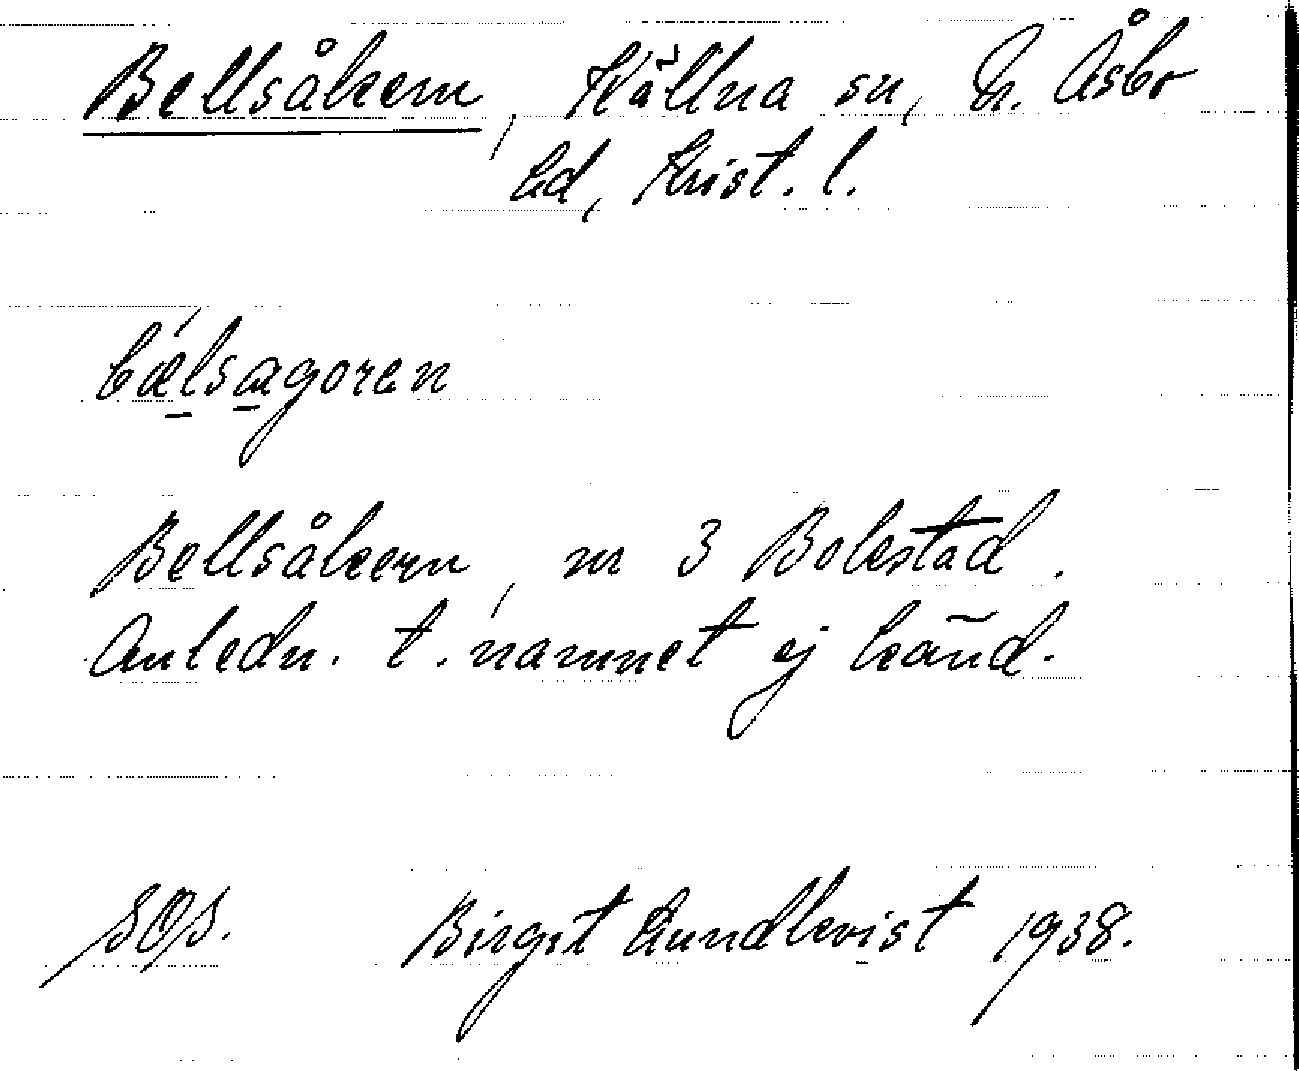 Bellsåkern, Källna sn, N. Åsbo
hd, Krist. l.
bælsagoren
Bellsåkern, nr 3 Bolestad.
Anledn. t. namnet ej känd.
SOS. Birgit Lundkvist 1938.